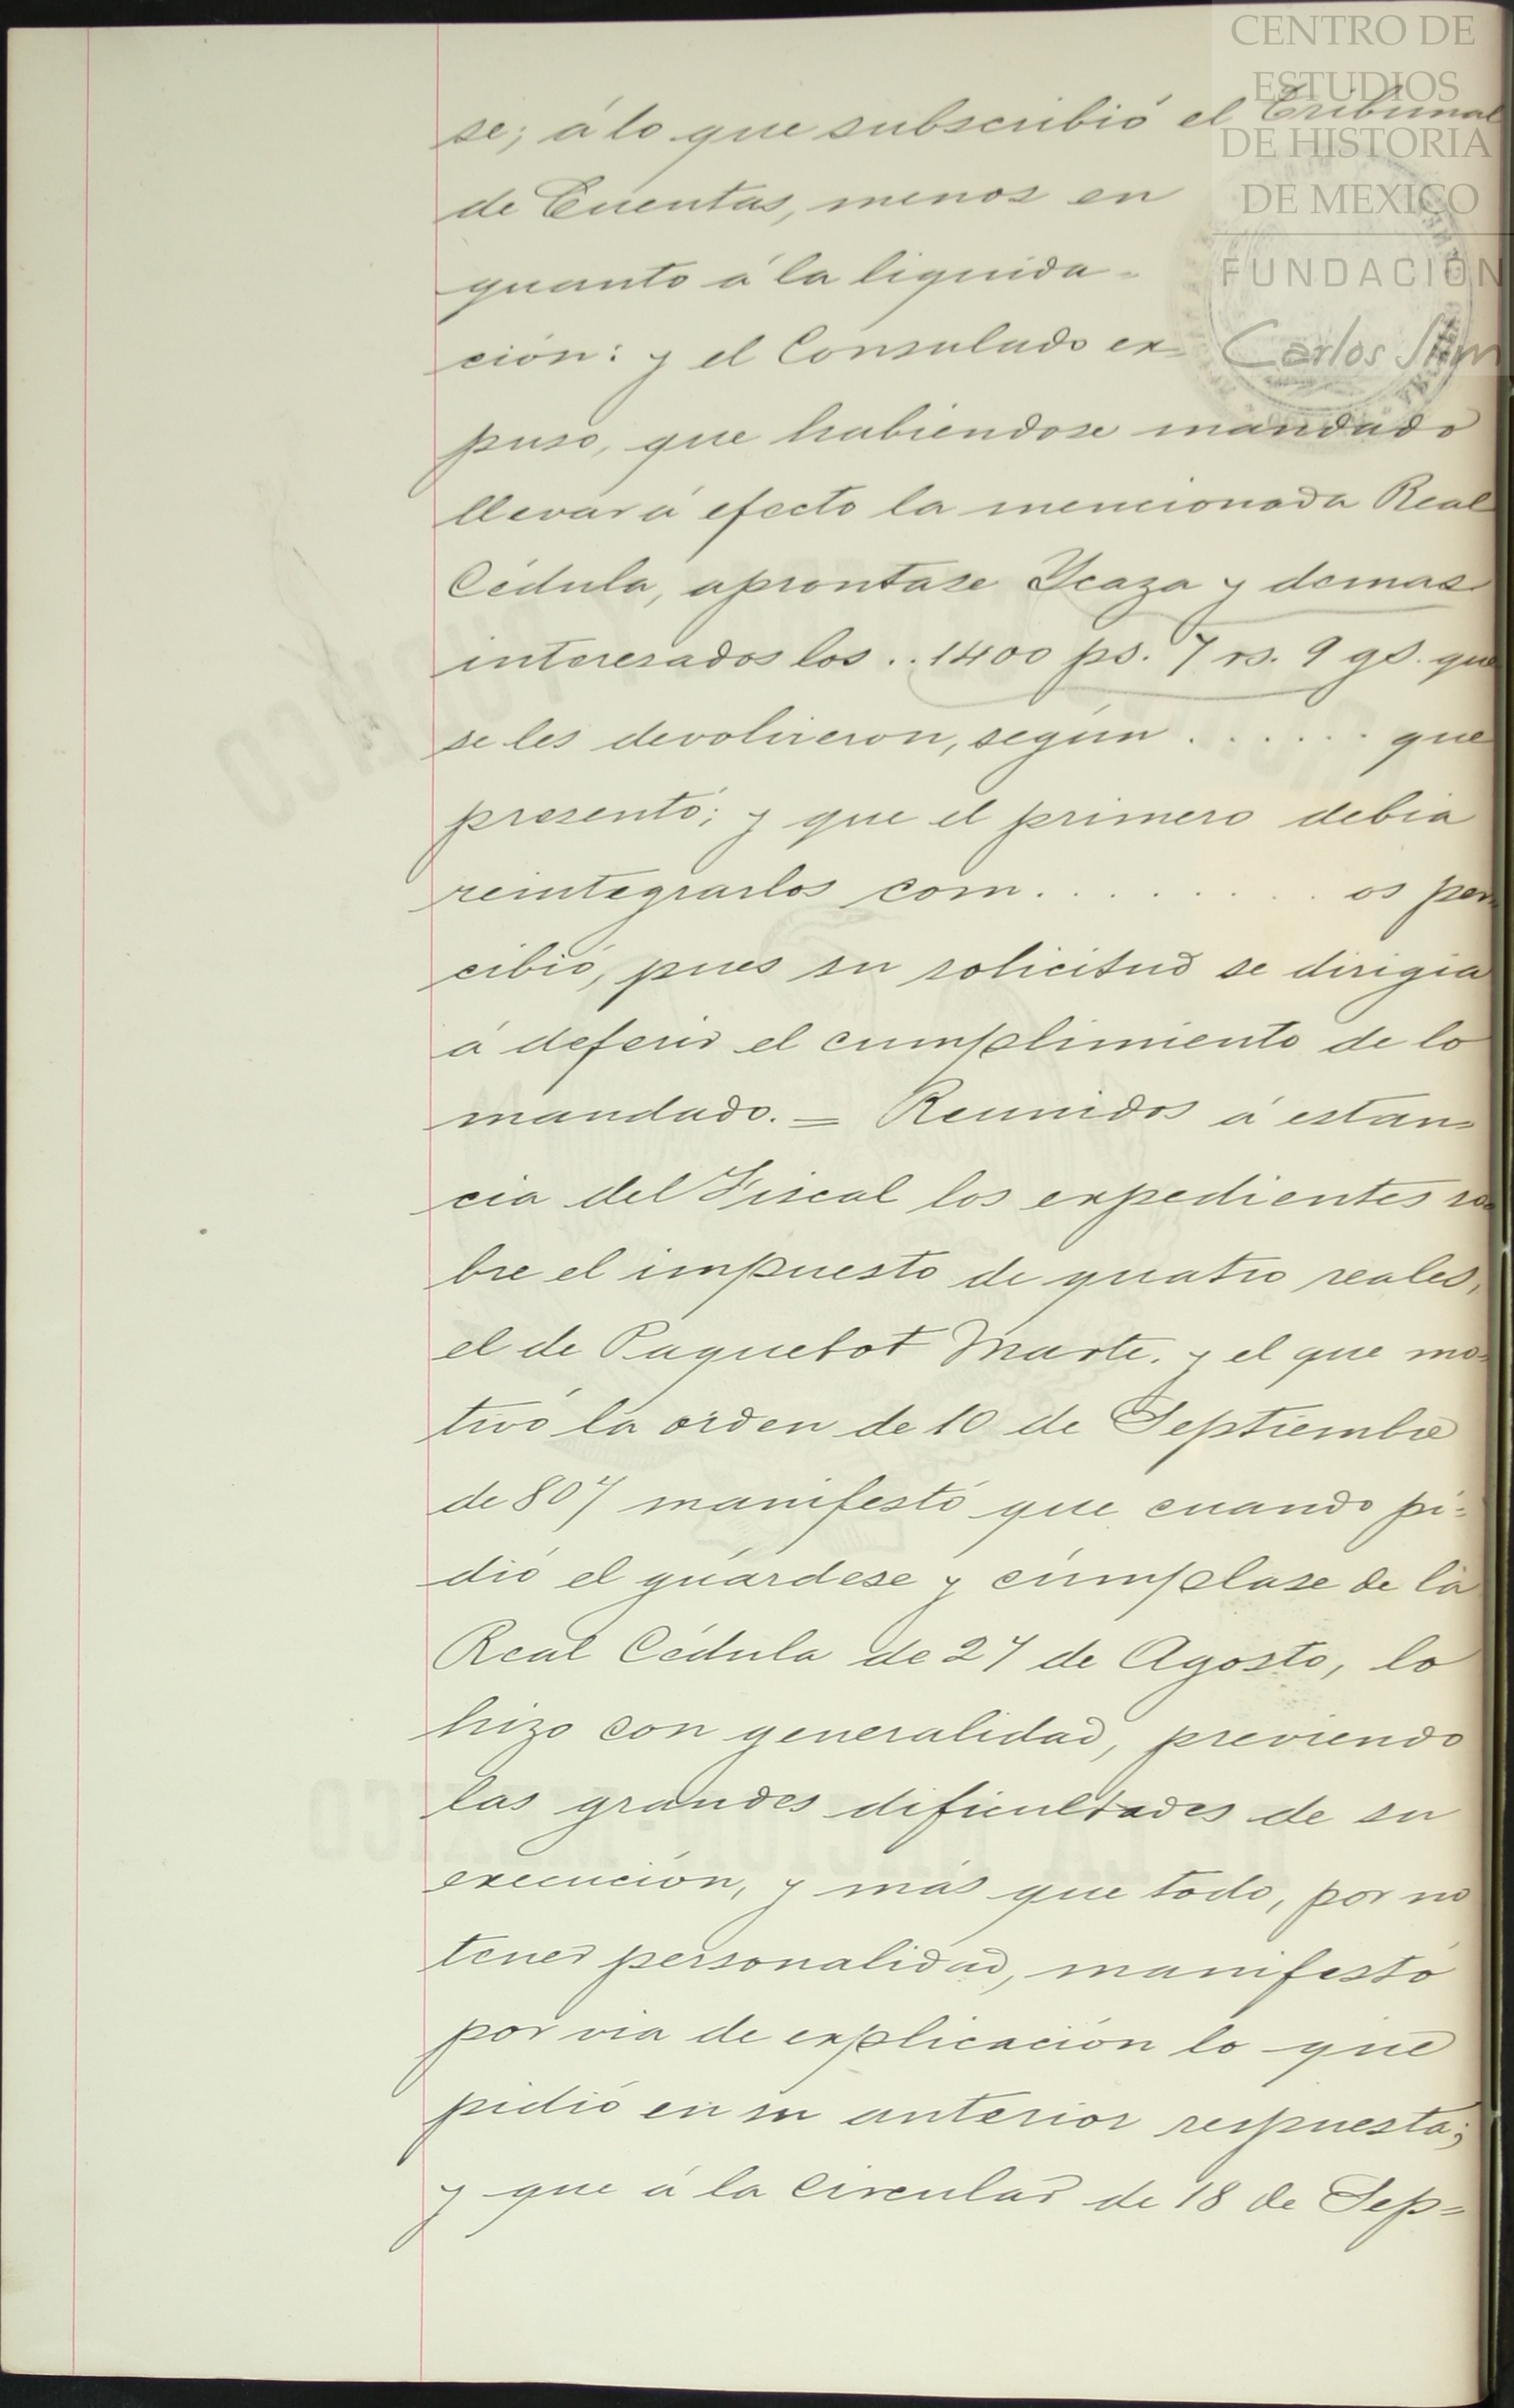 CENTRO DE
ESTUDIOS
DE HISTORIA
DE MEXICO
FUNDACIÓN
Carlos Slim
se; á lo que subscribió el Tribunal
de Cuentas, menos en
quanto á la liquida-
ción: y el Consulado ex-
puso, que habiendose mandado
llevar á efecto la mencionada Real
Cédula, aprontase Ycaza y demas
interesados los .. 1400 ps. 7 rs. 9 gs. que
se les devolvieron, según . . . . . . que
presentó; y que el primero debia
reintegrarlos com . . . . . . . . os per-
cibió, pues su solicitud se dirigia
á deferir el cumplimiento de lo
mandado. = Reunidos á estan-
cia del Fiscal los expedientes so-
bre el impuesto de quatro reales,
el de Paquebot Marte. y el que mo-
tivó la orden de 10 de Septiembre
de 807 manifestó que cuando pi-
dió el guárdese y cúmplase de la
Real Cédula de 27 de Agosto, lo
hizo con generalidad, previendo
las grandes dificultades de su
execución, y más que todo, por no
tener personalidad, manifestó
por via de explicación lo que
pidió en su anterior respuesta;
y que á la circular de 18 de Sep=